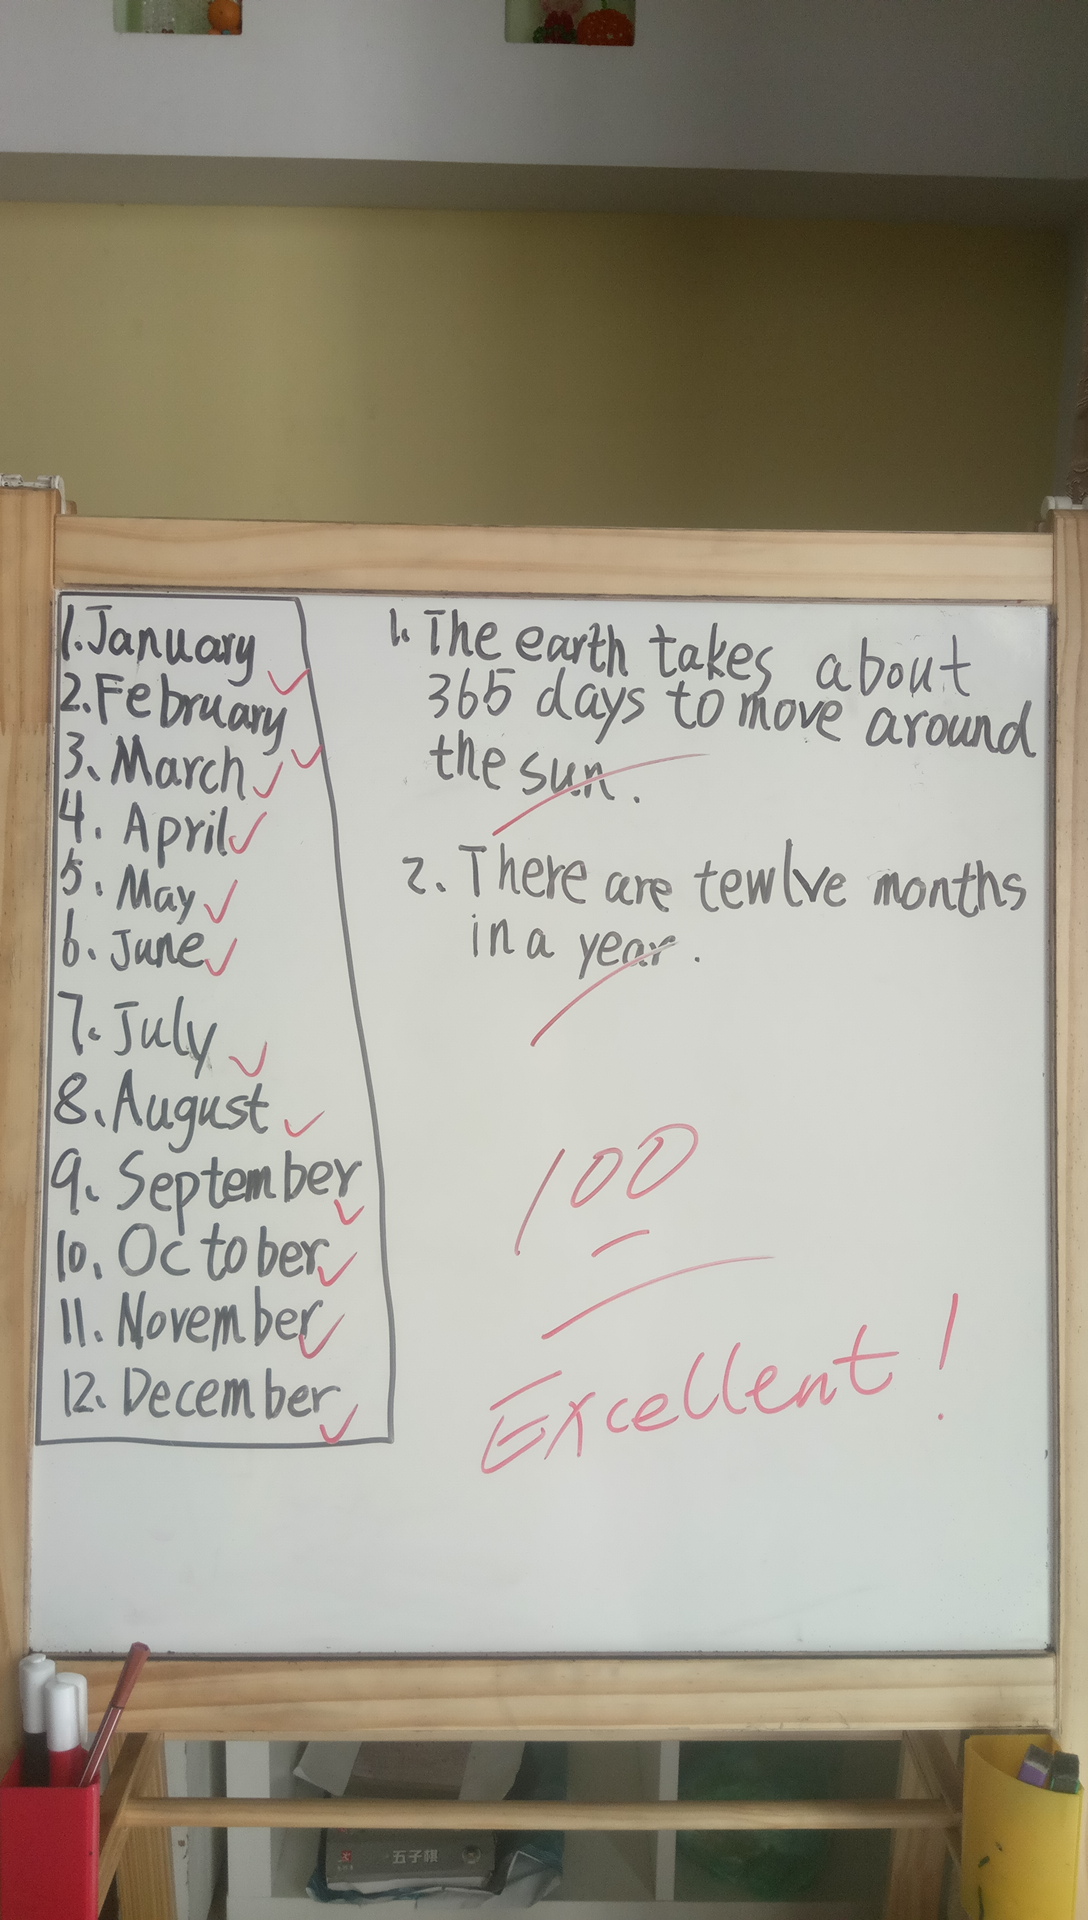 1. January
2. February
3. March
4. April
5. May
6. June
7. July
8. August
9. September
10. October
11. November
12. December
1. The earth takes about
365 days to move around
the sun.
2. There are tewlve months
in a year.
100
Excellent!
五子棋